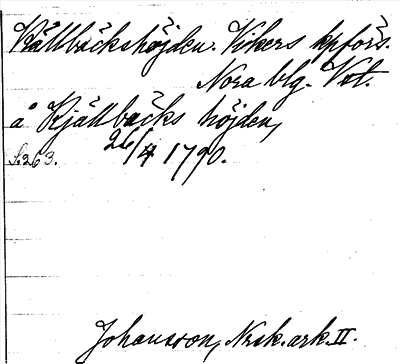 Källbäckshöjden. Vikers kpförs.
Nora blg. Vstl.
å Kjällbäcks höjden,
S. 263. 26/4 1790.
Johansson, Nask. ark. II.